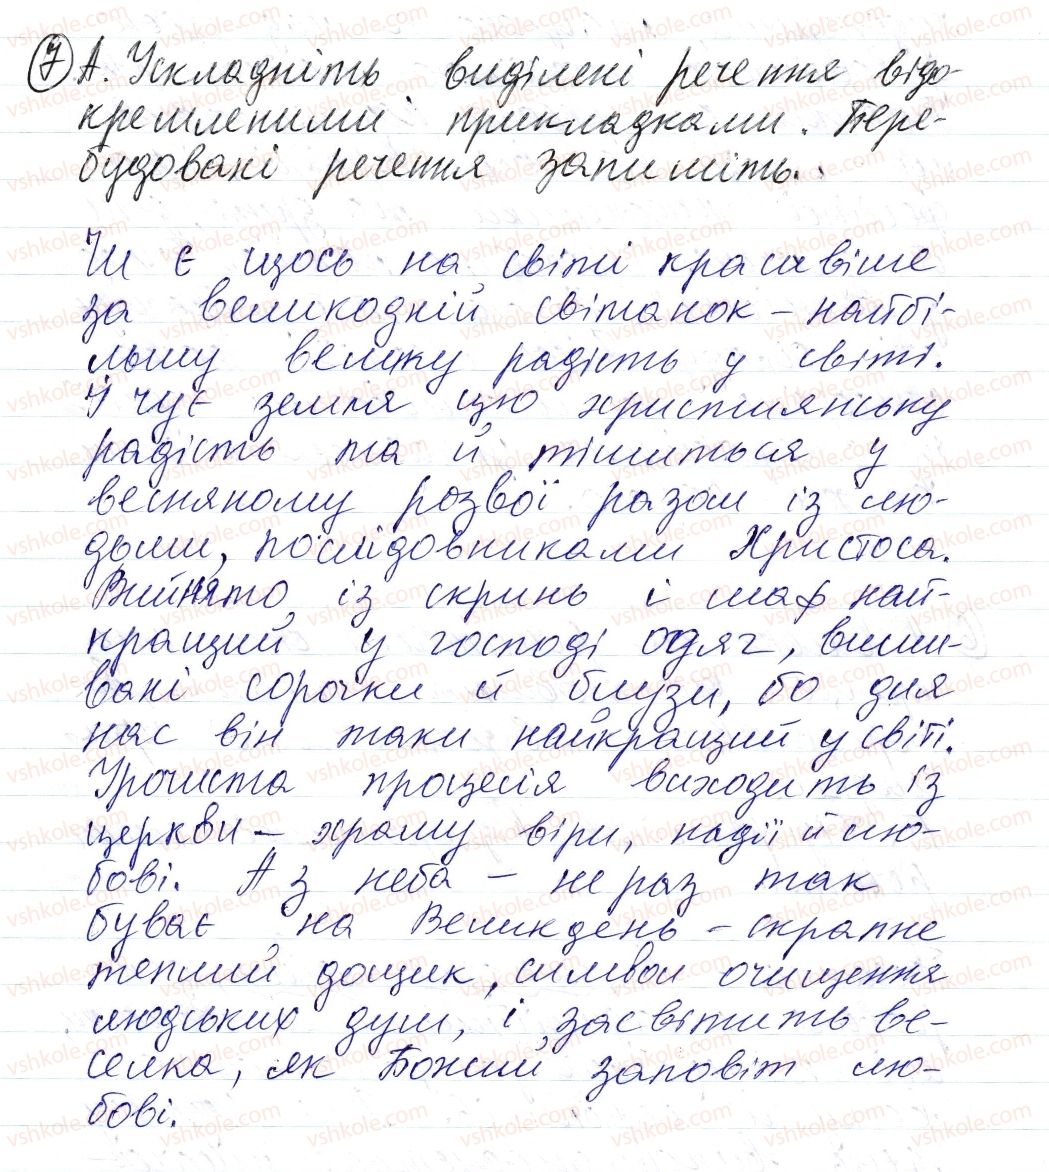 7 А. Ускладніть виділені речення відо-
кремленими прикладками. Пере-
будовані речення запишіть.
Чи є щось на світі красивіше
за великодній світанок – найбі-
льшу велику радість у світі.
І чує земля цю християнську
радість та й тішиться у
весняному розвої разом із лю-
дьми, послідовниками Христоса.
Вийнято із скринь і шаф най-
кращий у господі одяг, виши-
вані сорочки й блузи, бо для
нас він таки найкращий у світі.
Урочиста процесія виходить із
церкви – храму віри, надії й лю-
бові. А з неба – не раз так
буває на Великдень – скрапне
теплий дощик, символ очищення
людських душ, і засвітить ве-
селка, як Божий заповіт лю-
бові.